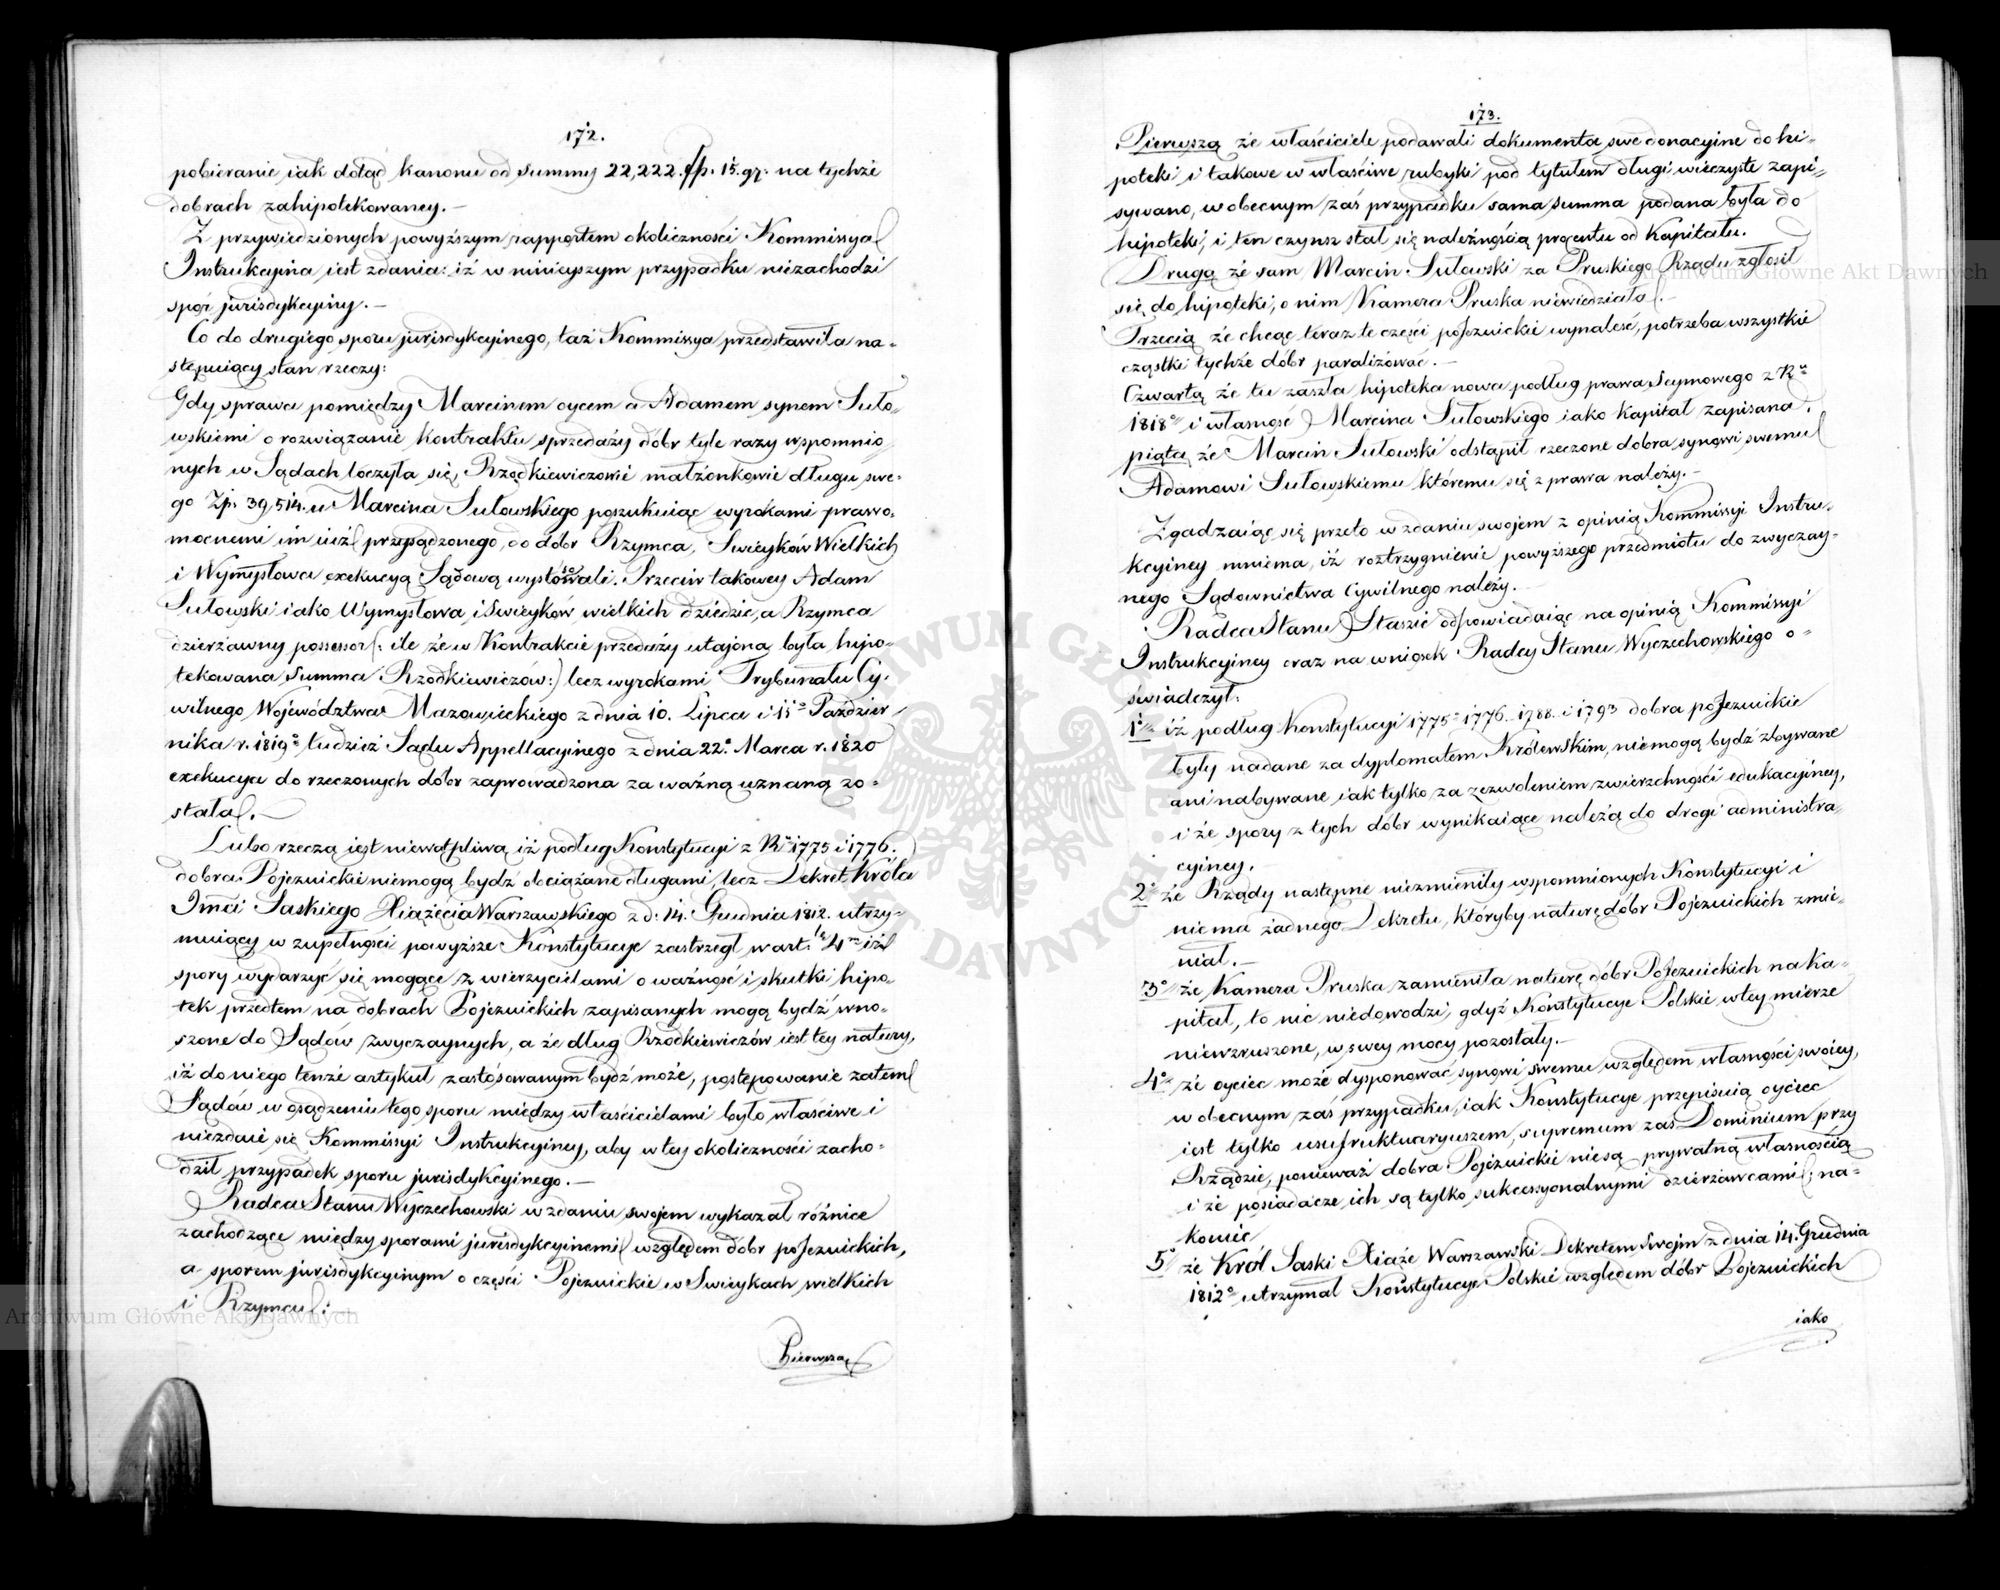 172.
pobieranie iak dotąd kanonu od summy 22,222. fp. 15. gr. na tychże
dobrach zahipotekowaney.—
Z przywiedzionych powyższym rapportem okoliczności Kommissya
Instrukcyina iest zdania: iż w ninieyszym przypadku niezachodzi
spór jurisdykcyiny.—
Co do drugiego sporu jurisdykcyinego, taż Kommissya przedstawiła na-
stępuiący stan rzeczy:
Gdy sprawa pomiędzy Marcinem oycem a Adamem synem Suło-
wskiemi o rozwiązanie kontraktu sprzedaży dóbr tyle razy wspomnio-
nych w Sądach toczyła się, Rządkiewiczowie małżonkowie długu swe-
go Zp. 39,514. u Marcina Sułowskiego poszukuiąc wyrokami prawo-
mocnemi im iuż przysądzonego, do dóbr Rzymca, Swieyków Wielkich
i Wymysłowa exekucyą Sądową wystósowali. Przeciw takowey Adam
Sułowski iako Wymysłowa i Swieyków wielkich dziedzic, a Rzymca
dzierżawny possessor (: ile że w Kontrakcie przedaży utajoną była hipo-
tekowana Summa Rządkiewiczów:) lecz wyrokami Trybunału Cy-
wilnego Województwa Mazowieckiego z dnia 10. Lipca i 15° Paździer-
nika r. 1819° tudzież Sądu Appellacyinego z dnia 22° Marca r. 1820
exekucya do rzeczonych dóbr zaprowadzona za ważną uznaną zo-
stała.—
Lubo rzeczą iest niewątpliwą iż podług Konstytucyi z Ru 1775 i 1776.
dobra Pojezuickie niemogą bydź obciążane długami, lecz Dekret Króla
Imci Saskiego Xiążęcia Warszawskiego z d: 14. Grudnia 1812. utrzy-
muiący w zupełności powyższe Konstytucye zastrzegł w art. 4m iż
spory wydarzyć się mogące z wierzycielami o ważność i skutki hipo-
tek przedtem na dobrach Pojezuickich zapisanych mogą bydź wno-
szone do Sądów zwyczaynych, a że dług Rządkiewiczów iest tey natury,
iż do niego tenże artykuł zastósowanym bydź może, postępowanie zatem
Sądów w osądzeniu tego sporu między właścicielami było właściwe i
niezdaie się Kommissyi Instrukcyiney, aby w tey okoliczności zacho-
dził przypadek sporu jurisdykcyinego.—
Radca Stanu Wyczechowski w zdaniu swojem wykazał różnice
zachodzące między sporami jurisdykcyinemi względem dóbr pojezuickich,
a sporem jurisdykcyinym o części Pojezuickie w Swieykach wielkich
i Rzymcu:
Pierwszą
173.
Pierwszą że właściciele podawali dokumenta swe donacyine do hi-
poteki i takowe w właściwe rubryki pod tytułem długi wieczyste zapi-
sywano, w obecnym zaś przypadku sama summa podana była do
hipoteki, i ten czynsz stał się należnością procentu od Kapitału.
Drugą że sam Marcin Sułowski za Pruskiego Rządu zgłosił
się do hipoteki, o nim Kamera Pruska niewiedziała.—
Trzecią że chcąc teraz te części pojezuickie wynaleść, potrzeba wszystkie
cząstki tychże dóbr paraliżować.—
Czwartą że tu zaszła hipoteka nowa podług prawa Seymowego z Ru
1818° i własność Marcina Sułowskiego iako kapitał zapisana.
piątą że Marcin Sułowski odstąpił rzeczone dobra synowi swemu
Adamowi Sułowskiemu któremu się z prawa należy.—
Zgadzaiąc się przeto w zdaniu swojem z opinią Kommissyi Instru-
kcyiney mniema, iż rozstrzygnienie powyższego przedmiotu do zwyczay-
nego Sądownictwa Cywilnego należy.—
Radca Stanu Staszic odpowiadaiąc na opinią Kommissyi
Instrukcyiney oraz na wniosek Radcy Stanu Wyczechowskiego o-
świadczył:
1° iż podług Konstytucyi 1775° 1776. 1788. i 1793 dobra pojezuickie
były nadane za dyplomatem Królewskim, niemogą bydź zbywane
ani nabywane iak tylko za zezwoleniem zwierzchności edukacyiney,
i że spory z tych dóbr wynikaiące należą do drogi administra-
cyiney.
2° że Rządy następne niezmieniły wspomnionych Konstytucyi i
niema żadnego Dekretu, któryby naturę dóbr Pojezuickich zmie-
niał.—
3° że Kamera Pruska zamieniła naturę dóbr Pojezuickich na Ka-
pitał, to nic niedowodzi, gdyż Konstytucye Polskie w tey mierze
niewzruszone, w swey mocy pozostały.—
4° że oyciec może dysponować synowi swemu względem własności swoiey,
w obecnym zaś przypadku, iak Konstytucye przepisuią oyciec
iest tylko usufruktuaryuszem, supremum zaś Dominium przy
Rządzie, ponieważ dobra Pojezuickie niesą prywatną własnością
i że posiadacze ich są tylko sukcessyonalnymi dzierżawcami; na-
koniec
5° że Król Saski Xiąże Warszawski Dekretem Swojm z dnia 14. Grudnia
1812° utrzymał Konstytucye Polskie względem dóbr Pojezuickich
iako
ARCHIWUM GŁÓWNE AKT DAWNYCH
Archiwum Główne Akt Dawnych
Archiwum Główne Akt Dawnych